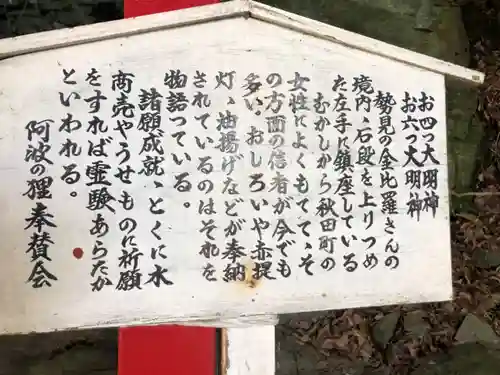 お四つ大明神
お六つ大明神
勢見の金比羅さんの
境内、石段を上りつめ
た左手に鎮座している
むかしから秋田町の
女性によくもてて、そ
の方面の信者が今でも
多い。おしろいや赤提
灯、油揚げなどが奉納
されているのはそれを
物語っている。
諸願成就、とくに水
商売やうせものに祈願
をすれば霊験あらたか
といわれる。
阿波の狸奉賛会